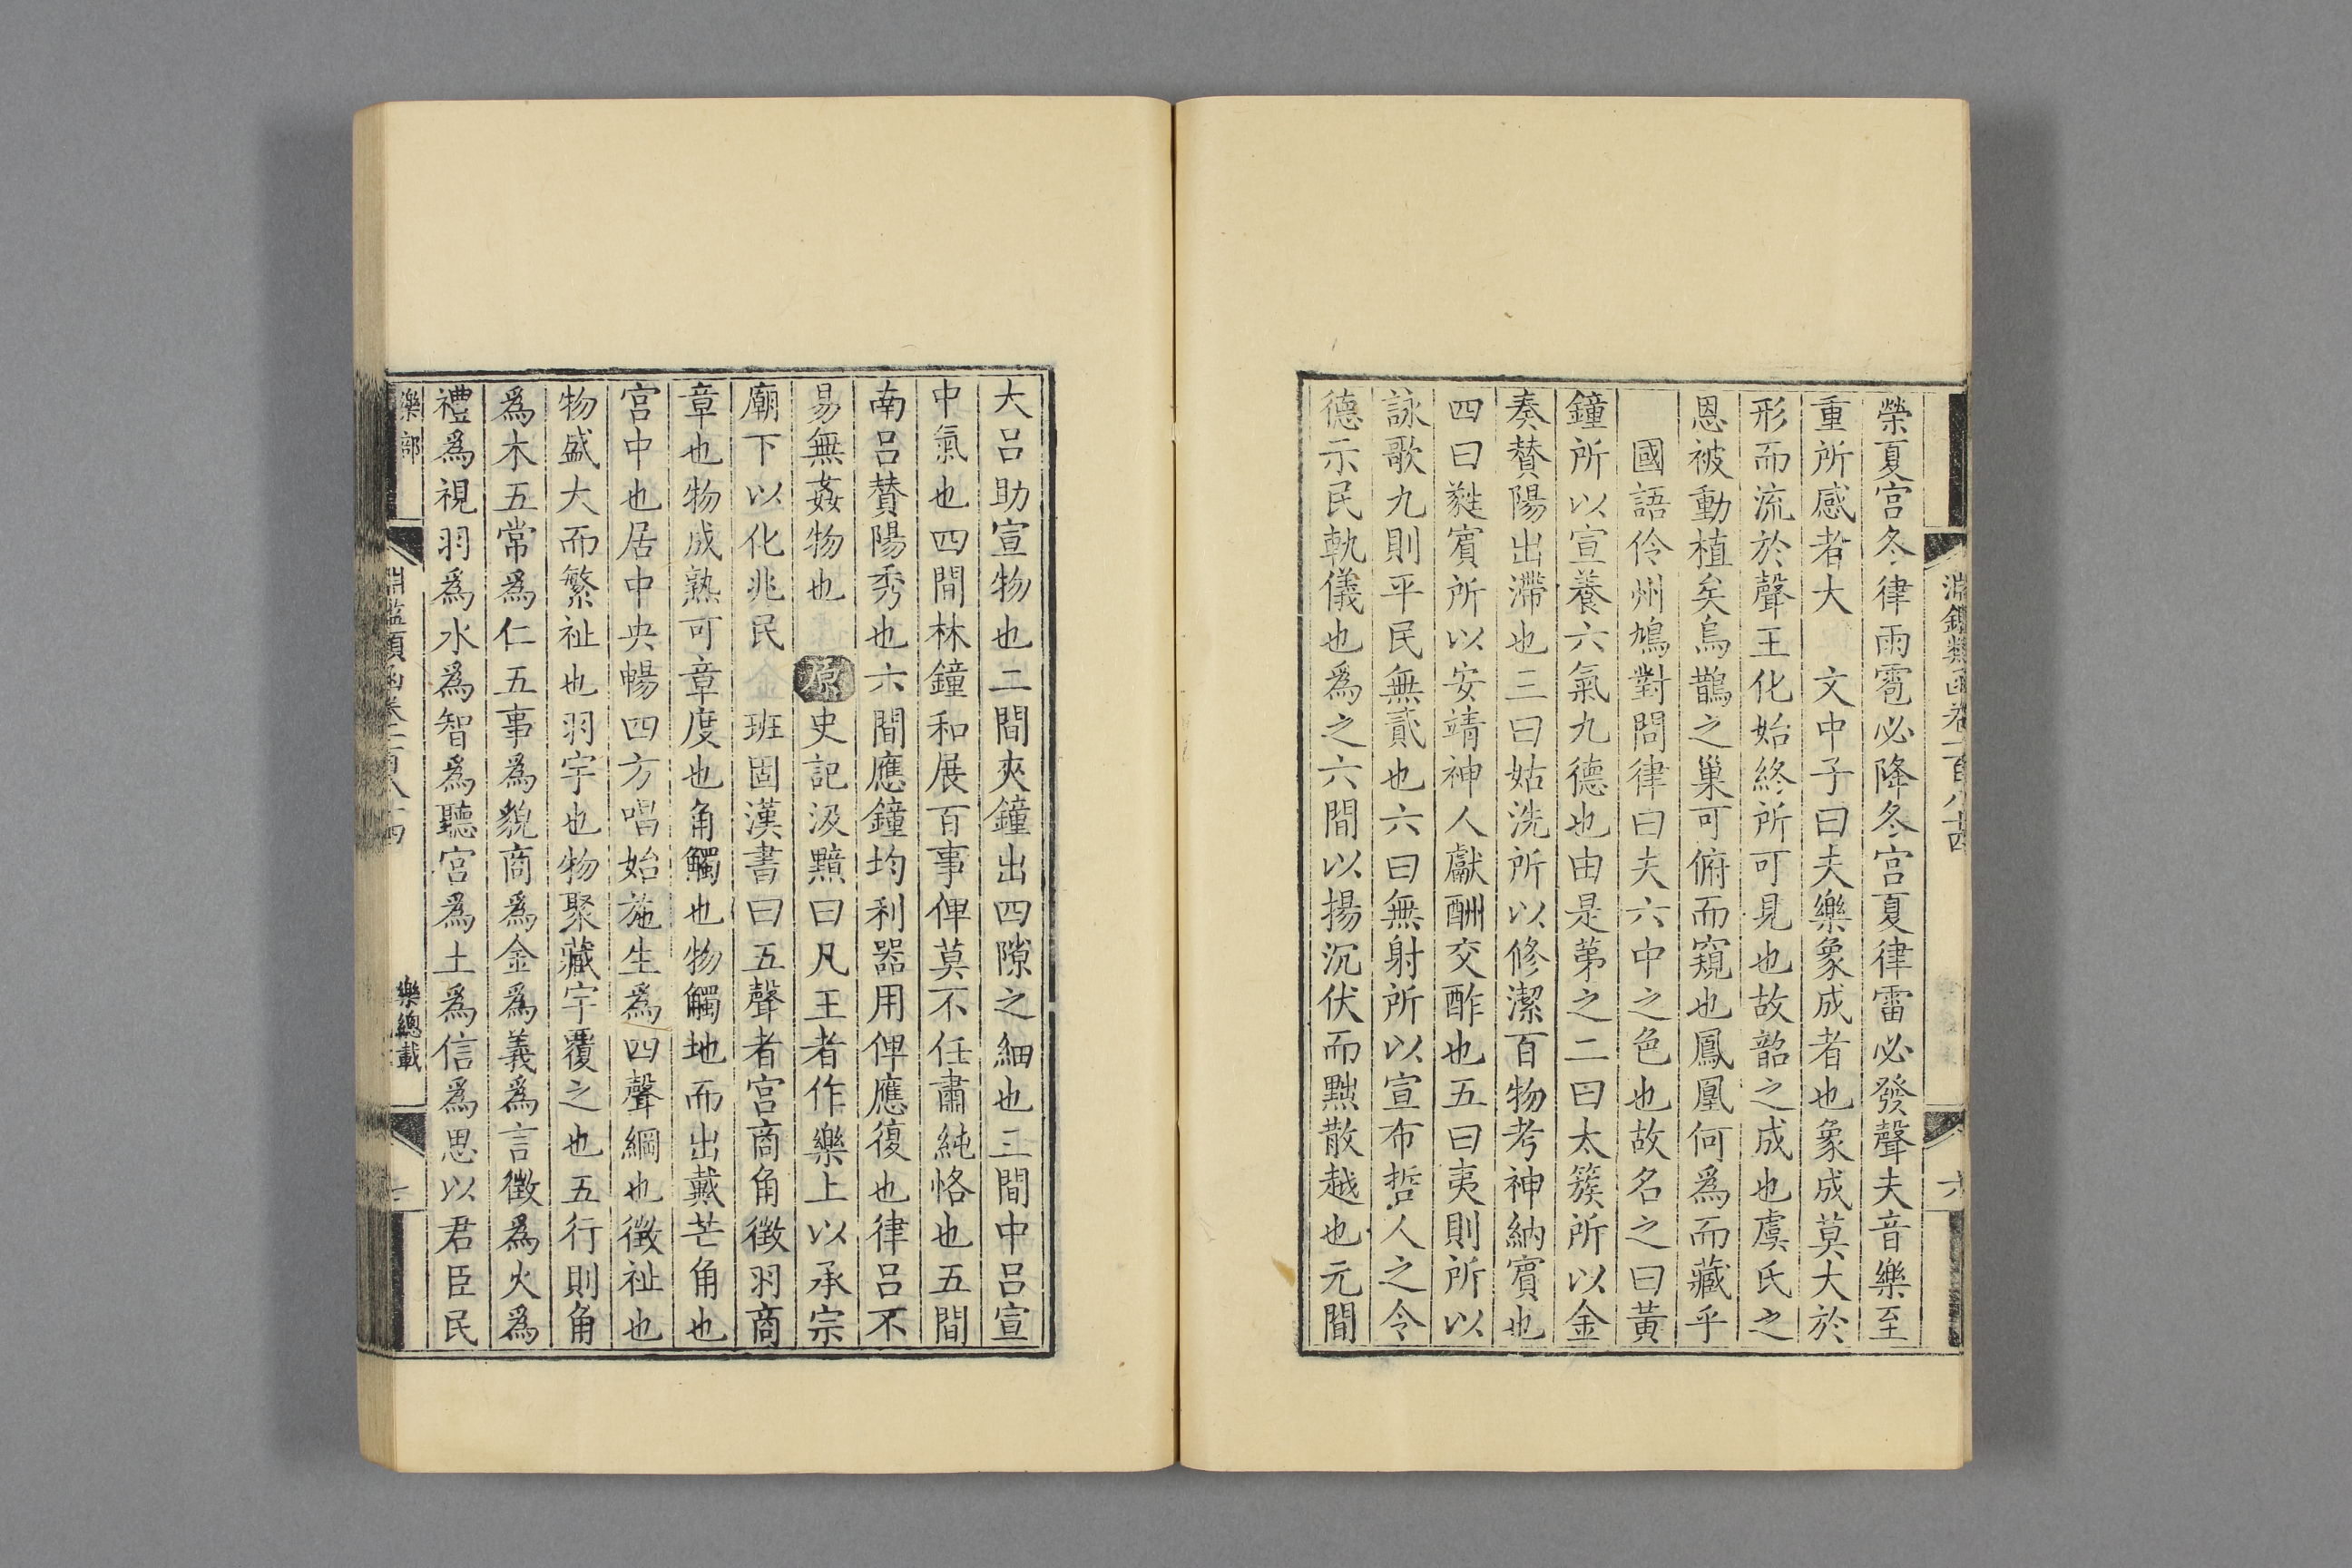 淵鑑類函卷一百八十四
六
榮夏宮冬律雨雹必降冬宮夏律雷必發聲夫音樂至
重所感者大 文中子曰夫樂象成者也象成莫大於
形而流於聲王化始終所可見也故韶之成也虞氏之
恩被動植矣烏鵲之巢可俯而窺也鳳凰何為而藏乎
國語伶州鳩對問律曰夫六中之色也故名之曰黃
鐘所以宣養六氣九德也由是第之二曰太簇所以金
奏贊陽出滯也三曰姑洗所以修潔百物考神納賓也
四曰蕤賓所以安靖神人獻酬交酢也五曰夷則所以
詠歌九則平民無貳也六曰無射所以宣布哲人之令
德示民軌儀也為之六間以揚沉伏而黜散越也元間
大呂助宣物也二間夾鐘出四隙之細也三間中呂宣
中氣也四間林鐘和展百事俾莫不任肅純恪也五間
南呂贊陽秀也六間應鐘均利器用俾應復也律呂不
易無姦物也 原史記汲黯曰凡王者作樂上以承宗
廟下以化兆民 班固漢書曰五聲者宮商角徵羽商
章也物成熟可章度也角觸也物觸地而出戴芒角也
宮中也居中央暢四方唱始施生為四聲綱也徵祉也
物盛大而繁祉也羽宇也物聚藏宇覆之也五行則角
為木五常為仁五事為貌商為金為義為言徵為火為
禮為視羽為水為智為聽宮為土為信為思以君臣民
樂部
淵鑑類函卷一百八十四
樂總載
七